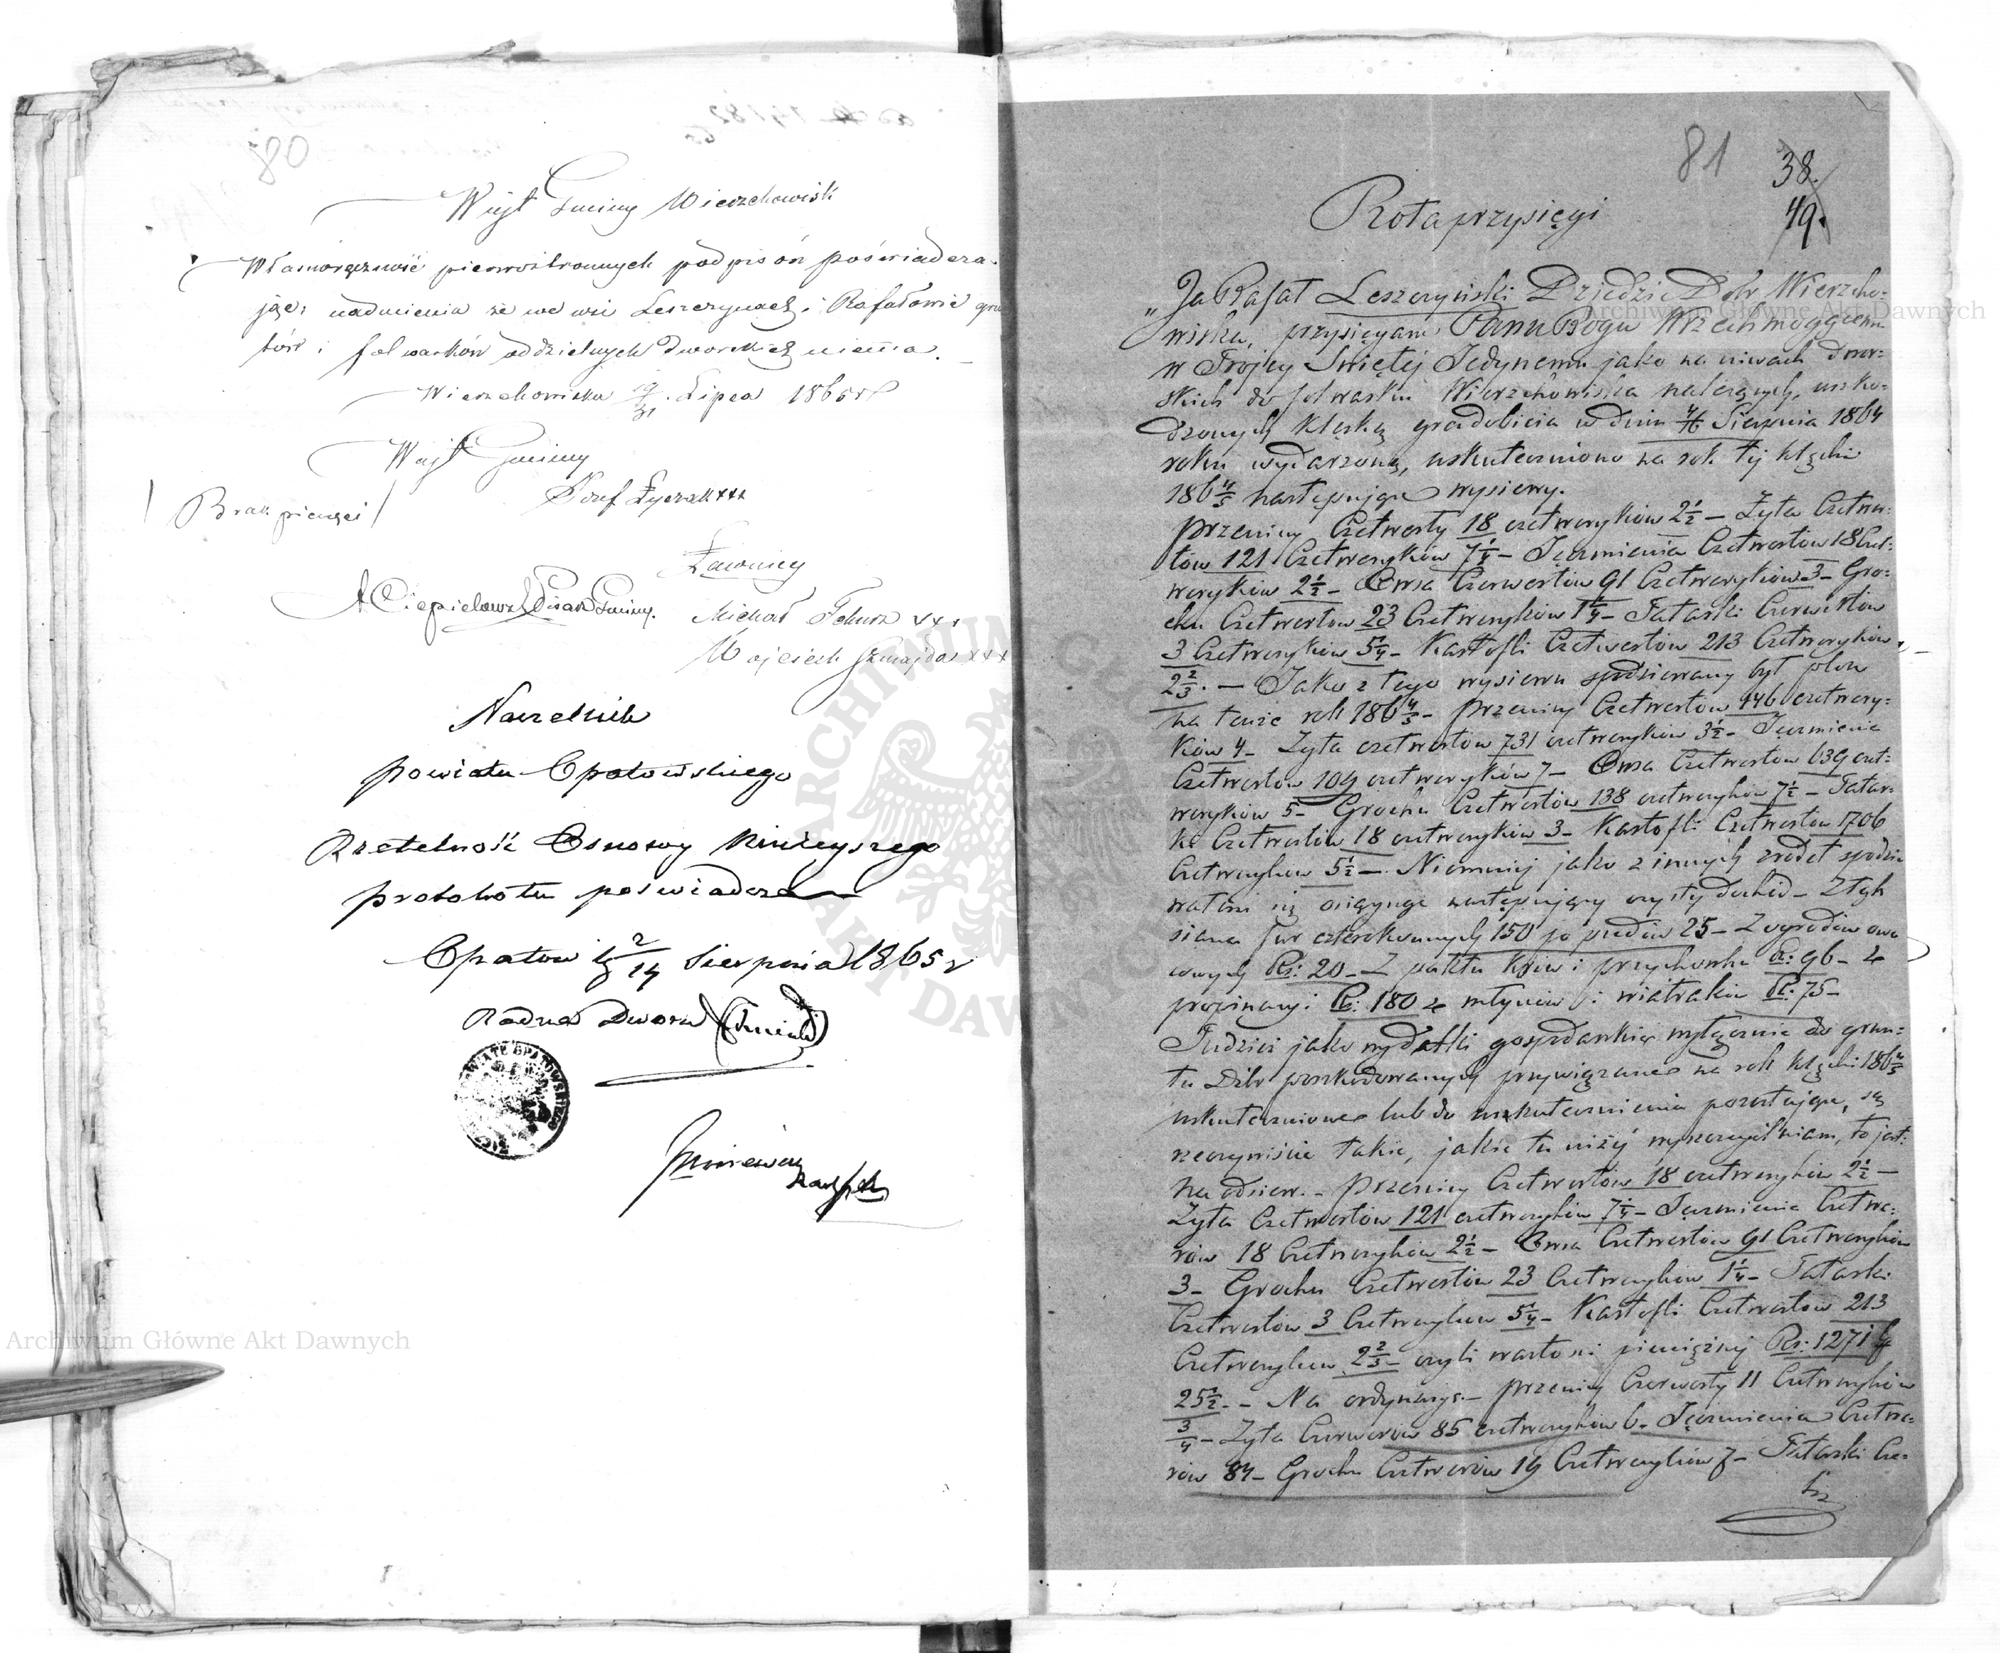 80
Wójt Gminy Wierzchowisk
Własnoręczność pierwostronnych podpisów poświadcza-
jąc, nadmienia że we wsi Leszczynach i Rafałowie grun
tów i folwarków oddzielnych dworskich niema.
Wierzchowiska 19/31 Lipca 1865 r
Wójt Gminy
Józef Łyczak xxx
Brak pieczęci
Ławnicy
A Ciepielewski Pisarz Gminy.
Michał xxx
Wojciech Szmajda xxx
Naczelnik
powiatu Opatowskiego
Rzetelność Osnowy Niniejszego
protokołu poświadcza
Opatów d 2/14 Sierpnia 1865 r
Radca Dworu
81
38.
49.
Rota przysięgi
"Ja Rafał Leszczyński Dziedzic Dóbr Wierzcho-
wiska, przysięgam Panu Bogu Wszechmogącemu
w Trójcy Świętej Jedynemu jako na niwach dwor-
skich do folwarku Wierzchowiska należących, uszko-
dzonych klęską gradobicia w dniu 4/16 Sierpnia 1864
roku wydarzoną, uskuteczniono na rok tej klęski
1864/5 następujące wysiewy.
pszenicy Czetwerty 18 czetweryków 2 1/2 – Żyta Czetwer-
tów 121 Czetweryków 7 1/4 – Jęczmienia Czetwertów 18 Czet-
weryków 2 1/2 – Owsa Czerwertów 91 Czetweryków 3 – Gro-
chu Czetwertów 23 Czetweryków 1 1/4 – Tatarki Czerwertów
3 Czetweryków 5 1/4 – Kartofli Czetwertów 213 Czetweryków
2 2/3. – Jako z tego wysiewu spodziewany był plon
na tenże rok 1864/5 – pszenicy Czetwertów 146 czetwery-
ków 4 – Żyta czetwertów 731 czetweryków 3 1/2 – Jęczmienia
Czetwertów 109 czetweryków 7 – Owsa Czetwertów 639 czet-
weryków 5 – Grochu Czetwertów 138 czetweryków 7 1/2 – Tatar-
ki Czetwertów 18 czetweryków 3 – Kartofli Czetwertów 1706
Czetweryków 5 1/2 –. Niemniej jako z innych źródeł spodzie
wałem się osiągnąć następujący czysty dochód – Z łąk
siana fur czterokonnych 150 po pudów 25 – Z ogrodów owo
cowych Rs: 20 – Z paktu krów i przychówku Rs: 96 – z
propinacyi Rs: 180 z młynów i wiatraków Rs: 75 –
Tudzież jako wydatki gospodarskie wyłącznie do grun-
tu Dóbr poszkodowanych przywiązane na rok klęski 1864/5
uskutecznione lub do uskutecznienia pozostające, są
rzeczywiście takie, jakie tu niżej wyszczególniam, to jest:
Na odsiew. – pszenicy Czetwertów 18 czetweryków 2 1/2 –
Żyta Czetwertów 121 czetweryków 7 1/4 – Jęczmienia Czetwe-
rów 18 Czetweryków 2 1/2 – Owsa Czetwertów 91 Czetweryków
3 – Grochu Czetwertów 23 Czetweryków 1 1/4 – Tatarki
Czetwertów 3 Czetweryków 5 1/4 – Kartofli Czetwertów 213
Czetweryków 2 2/3 – czyli wartości pieniężnej Rs: 1271 k
25 1/2. – Na ordynarye – pszenicy Czerwerty 11 Czetweryków
3/4 – Żyta Czerwerów 85 czetweryków 6. Jęczmienia Czetwe-
rów 84 – Grochu Czetwerów 19 Czetweryków 7 – Tatarki Cze-
Archiwum Główne Akt Dawnych
Archiwum Główne Akt Dawnych
ARCHIWUM GŁÓWNE AKT DAWNYCH